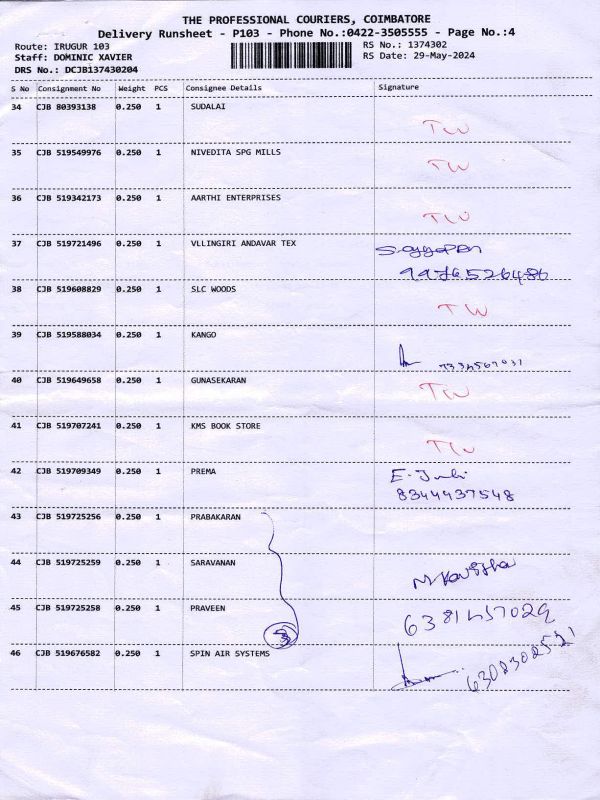 THE PROFESSIONAL COURIERS, COIMBATORE
Delivery Runsheet - P103 - Phone No.:0422-3505555 - Page No.:4
Route: IRUGUR 103 RS No.: 1374302
Staff: DOMINIC XAVIER RS Date: 29-May-2024
DRS No.: DCJB137430204
S No Consignment No Weight PCS Consignee Details Signature
34 CJB 80393138 0.250 1 SUDALAI
TW
35 CJB 519549976 0.250 1 NIVEDITA SPG MILLS
TW
36 CJB 519342173 0.250 1 AARTHI ENTERPRISES
TW
37 CJB 519721496 0.250 1 VLLINGIRI ANDAVAR TEX
38 CJB 519608829 0.250 1 SLC WOODS
TW
39 CJB 519588034 0.250 1 KANGO
40 CJB 519649658 0.250 1 GUNASEKARAN
TW
41 CJB 519707241 0.250 1 KMS BOOK STORE
TW
42 CJB 519709349 0.250 1 PREMA
8344437548
43 CJB 519725256 0.250 1 PRABAKARAN
44 CJB 519725259 0.250 1 SARAVANAN
M Kavitha
45 CJB 519725258 0.250 1 PRAVEEN
3
46 CJB 519676582 0.250 1 SPIN AIR SYSTEMS
6302302521